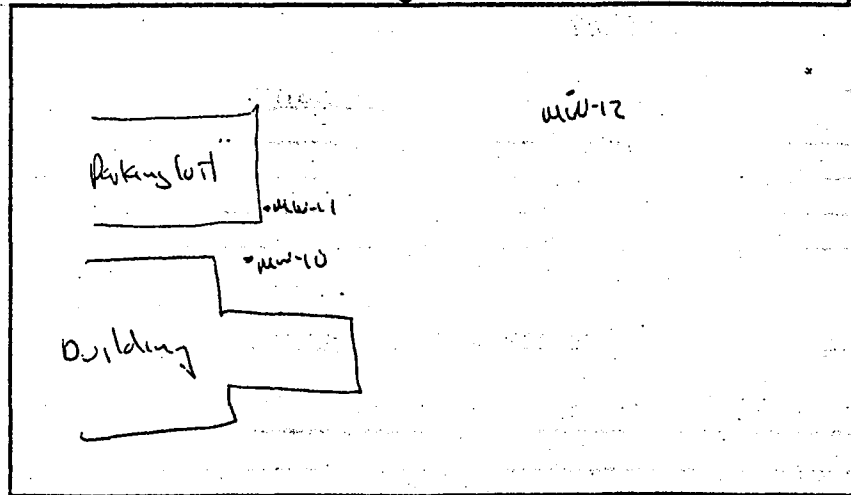 MW-12
Parking Lot
MW-11
MW-10
Building